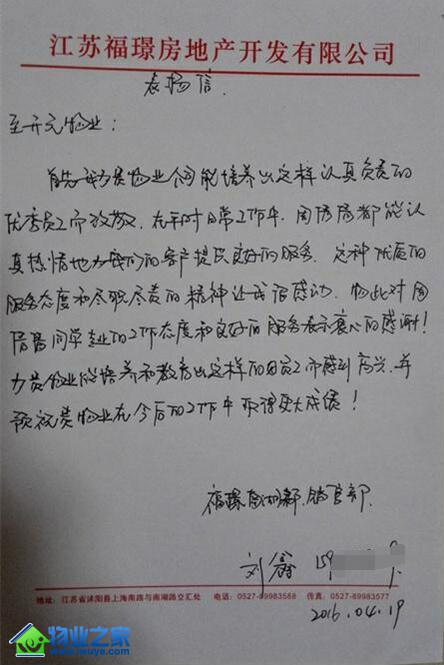 江苏福璟房地产开发有限公司
表扬信.
至开元物业：
首先我为贵物业公司能培养出这样认真负责的
优秀员工而致敬，在平时日常工作中，周同学都能认
真热情地为我们的客户提供良好的服务。这种优质的
服务态度和尽职尽责的精神让我倍感动，物此对周
同学专业的工作态度和良好的服务表示衷心的感谢！
为贵物业能培养和教育出这样的员工而感到高兴，并
预祝贵物业在今后的工作中取得更大成绩！
福璟 销管部.
刘鑫 159
地址：江苏省沭阳县上海南路与南湖路交汇处 电话：0527-89983568 传真：0527-89983577
2016.04.19
物业之家
www.wuye.com